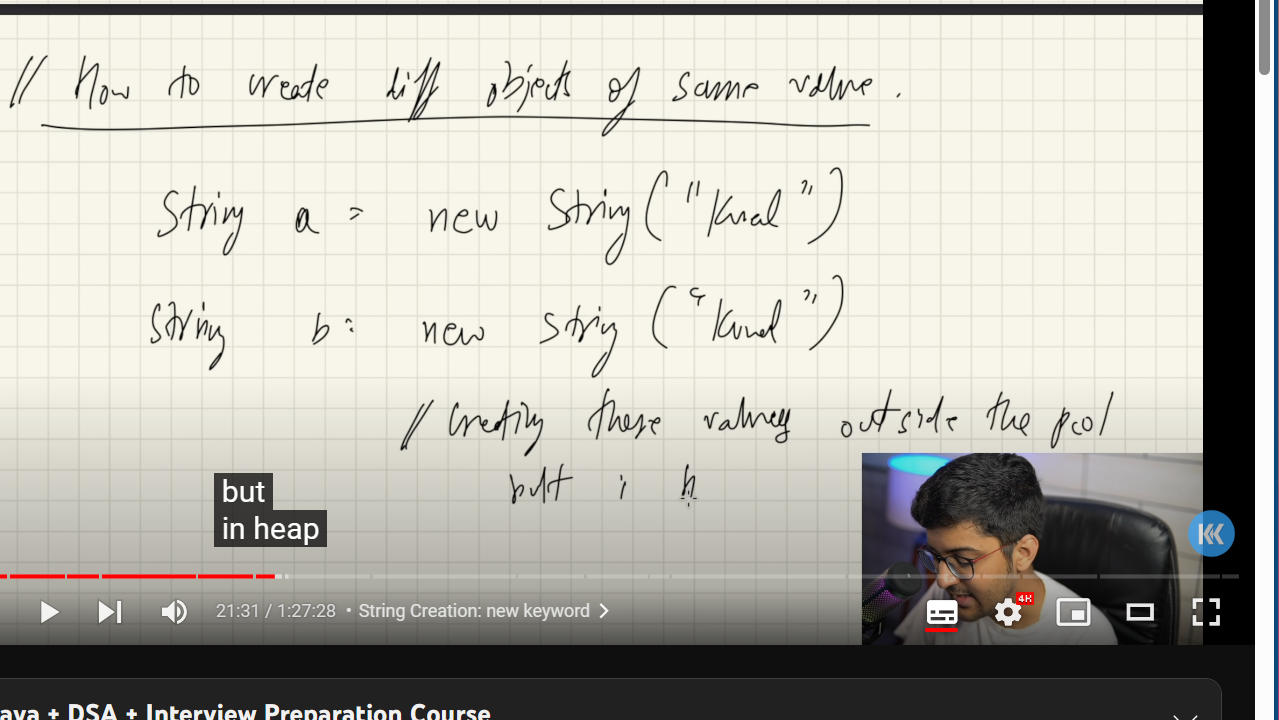 // How to create diff objects of same value.
String a = new String("Kunal")
String b = new String("Kunal")
// Creating these values outside the pool
but i h
but
in heap
21:31 / 1:27:28 • String Creation: new keyword
4K
ava + DSA + Interview Preparation Course